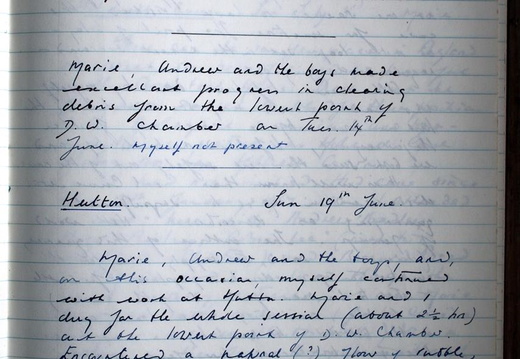 Marie, Andrew and the boys made
excellent progress in clearing
debris from the lowest point of
D.W. Chamber on Tues. 14th
June. Myself not present
Hutton. Sun 19th June.
Marie, Andrew and the boys, and,
on this occasion, myself continued
with work at Hutton. Marie and I
dug for the whole session (about 2½ hrs)
at the lowest point of D.W. Chamber.
Encountered a natural (?) flow of rubble,